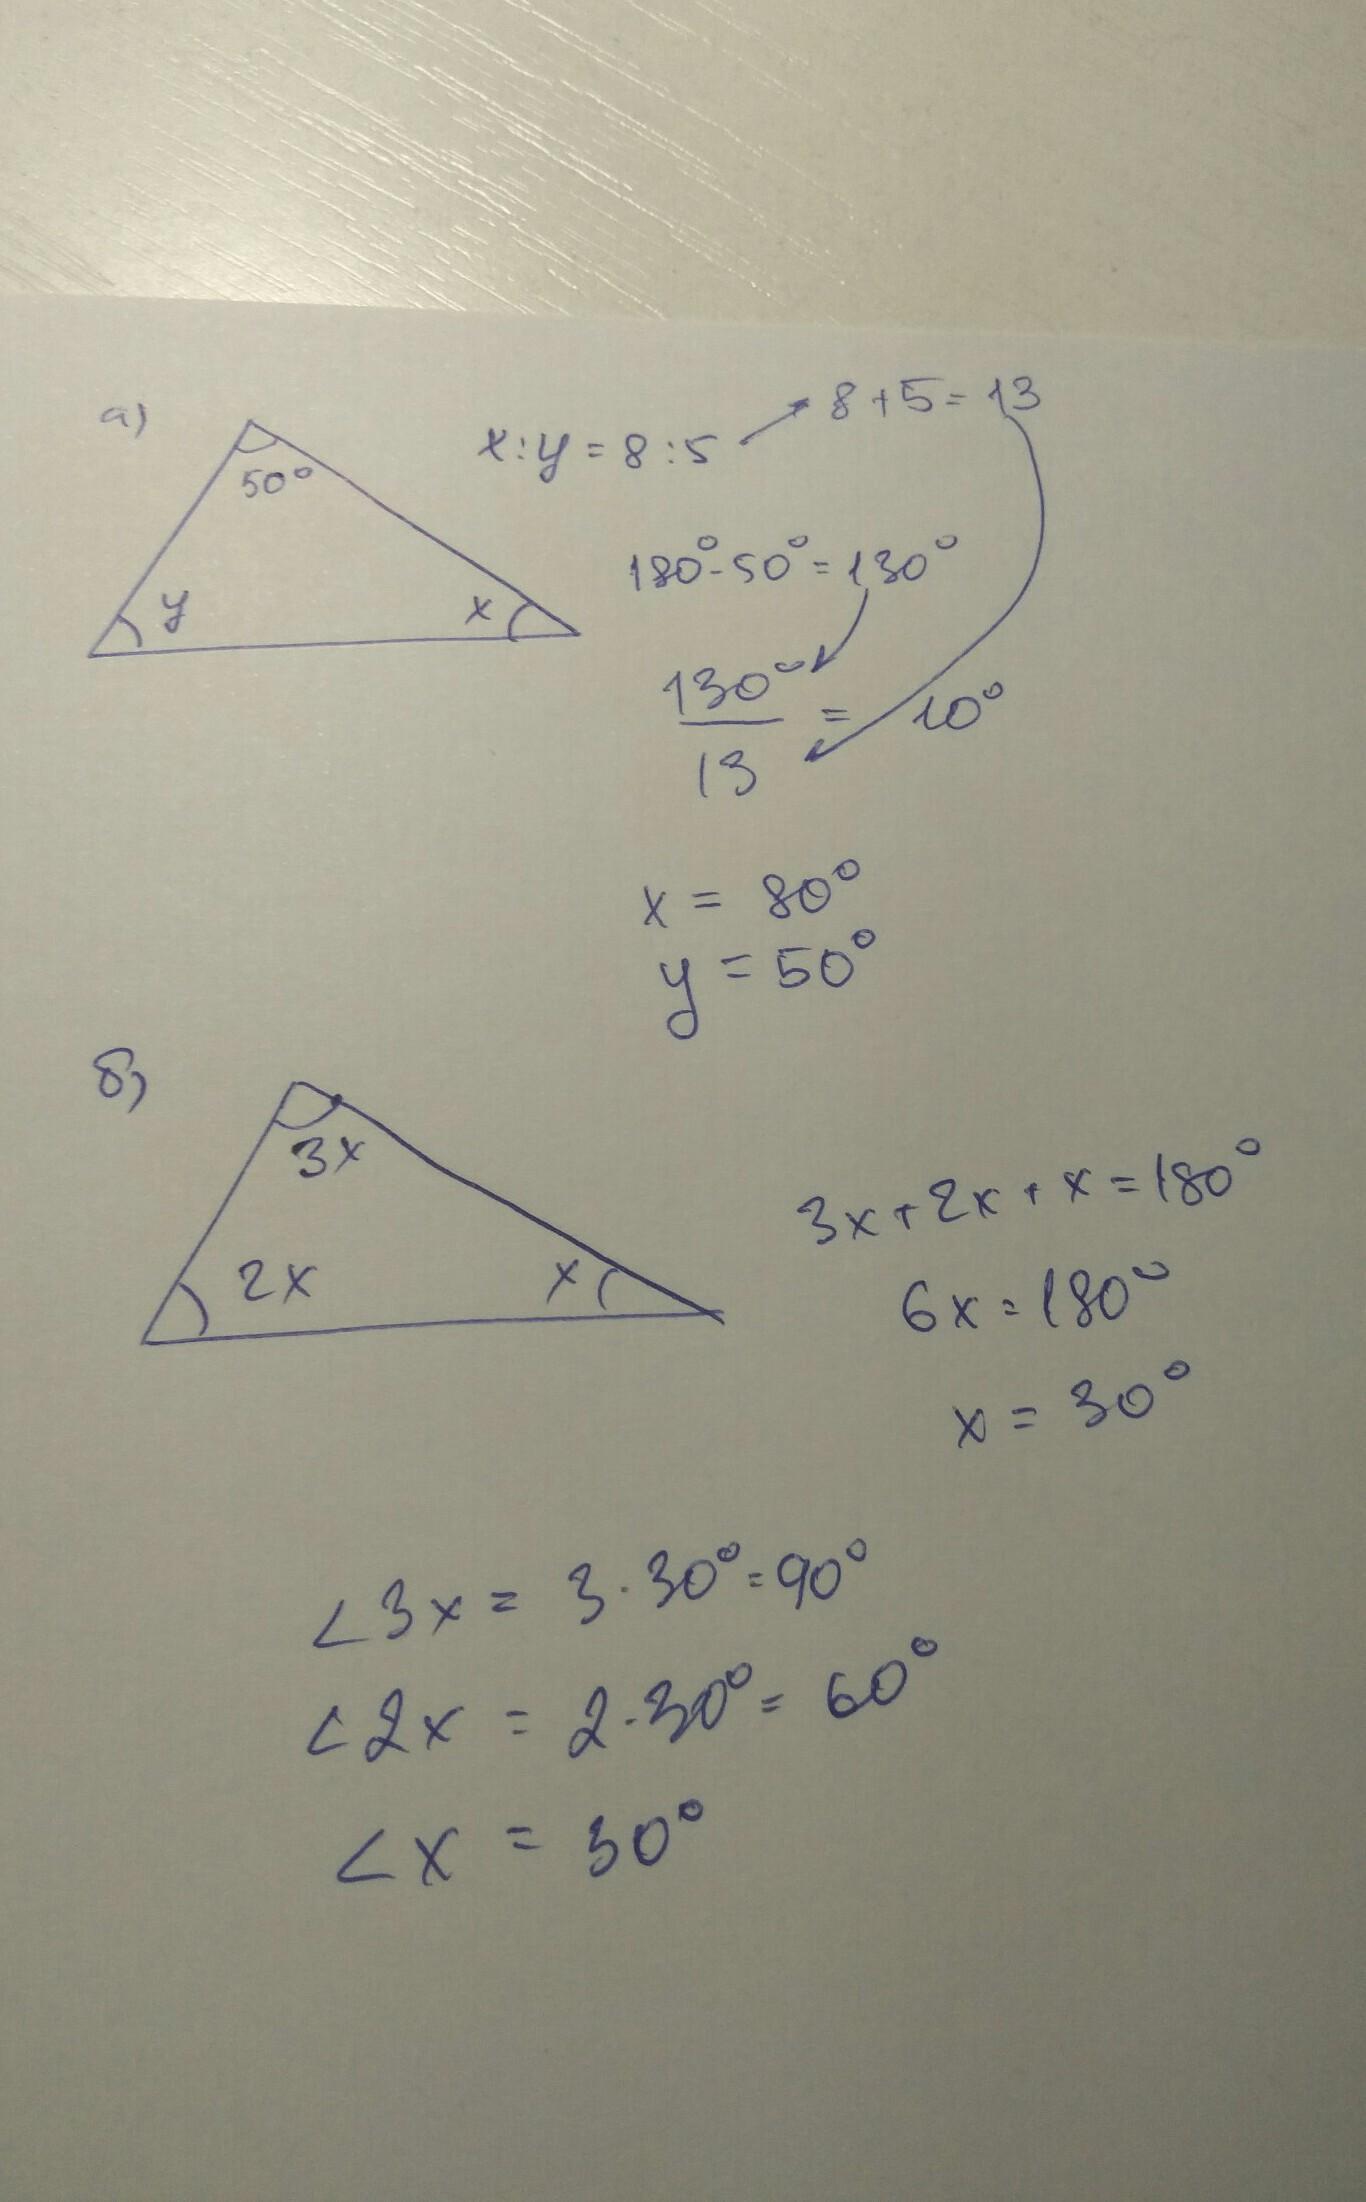 а)
50°
y
x
x:y=8:5
8+5=13
180°-50°=130°
130°
13
= 10°
x = 80°
y = 50°
б)
3x
2x
x
3x+2x+x=180°
6x=180°
x = 30°
∠3x = 3·30°=90°
∠2x = 2·30°= 60°
∠x = 30°